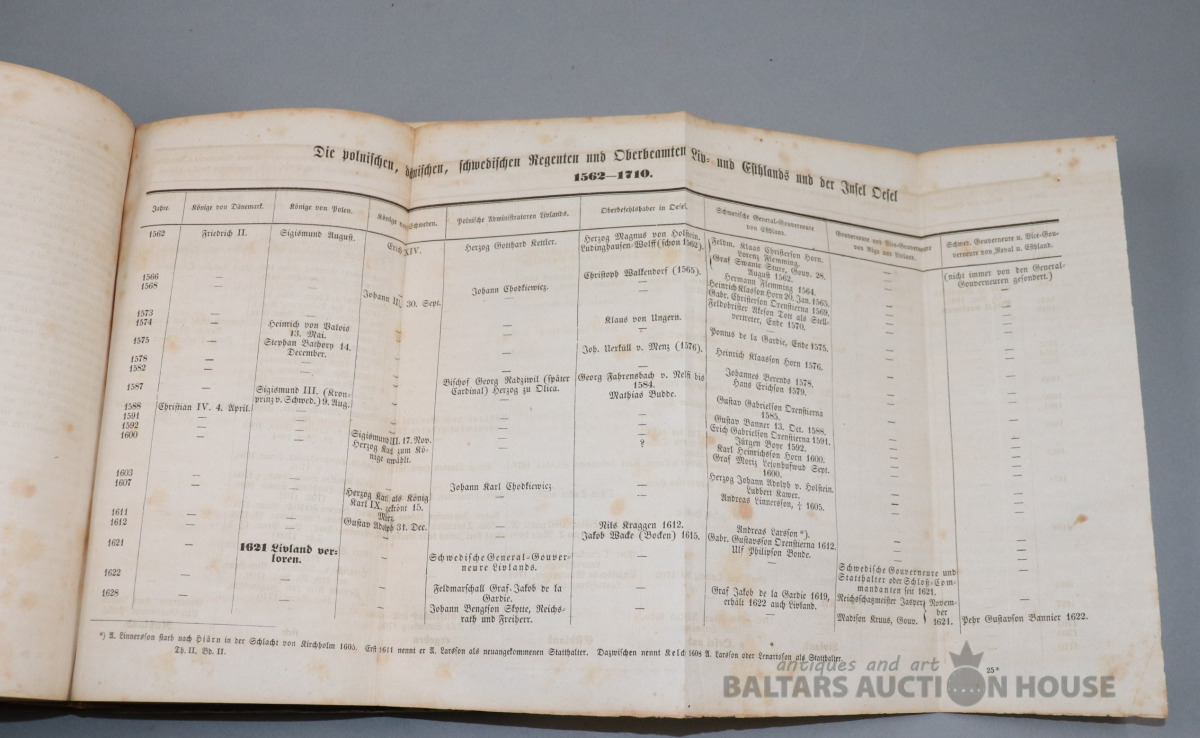 Die polnischen, dänischen, schwedischen Regenten und Oberbeamten Liv- und Esthlands und der Insel Oesel
1562—1710.
Jahre.
Könige von Dänemark.
Könige von Polen.
Könige von Schweden.
Polnische Administratoren Livlands.
Oberbefehlshaber in Oesel.
Schwedische General-Gouverneure
von Esthland.
Gouverneure und Vice-Gouverneure
von Riga und Livland.
Schwed. Gouverneure u. Vice-Gou-
verneure von Reval u. Esthland.
1562
1566
1568
1573
1574
1575
1578
1582
1587
1588
1591
1592
1600
1603
1607
1611
1612
1621
1622
1628
Friedrich II.
—
—
—
—
—
—
Christian IV. 4. April.
—
—
—
—
—
—
—
—
Sigismund August.
—
—
Heinrich von Valois
13. Mai.
Stephan Bathory 14.
December.
—
Sigismund III. (Kron-
prinz v. Schwed.) 9. Aug.
—
—
—
—
1621 Livland ver-
loren.
—
—
Erich XIV.
Johann III. 30. Sept.
—
—
Sigismund III. 17. Nov.
Herzog Karl zum Kö-
nige gewählt.
Herzog Karl als König
Karl IX. gekrönt 15.
März.
Gustav Adolph 31. Dec.
—
—
Herzog Gotthard Kettler.
—
Johann Chodkiewicz.
—
—
Bischof Georg Radziwil (später
Cardinal) Herzog zu Olica.
—
—
—
Johann Karl Chodkiewicz
—
Schwedische General-Gouver-
neure Livlands.
Feldmarschall Graf Jakob de la
Gardie.
Johann Bengtson Skytte, Reichs-
rath und Freiherr.
Herzog Magnus von Holstein.
Ludinghausen-Wolff (schon 1562).
Christoph Walkendorf (1565).
—
Klaus von Ungern.
—
Joh. Uexküll v. Menz (1576).
Georg Fahrensbach v. Nelfi bis
1584.
Mathias Budde.
—
—
?
—
Nils Kraggen 1612.
Jakob Wacke (Bocken) 1615.
—
—
Feldm. Klaas Christerson Horn.
Lorenz Flemming.
Graf Swante Sture, Gouv. 28.
August 1562.
Hermann Flemming 1564.
Heinrich Klasson Horn 20. Jan. 1565.
Gabr. Christerson Oxenstierna 1569.
Feldobrister Akeson Tott als Stell-
vertreter, Ende 1570.
Pontus de la Gardie, Ende 1575.
Heinrich Klaasson Horn 1576.
Johannes Berends 1578.
Hans Erichson 1579.
Gustav Gabrielson Oxenstierna
1585.
Gustav Banner 13. Oct. 1588.
Erich Gabrielson Oxenstierna 1591.
Jürgen Boye 1592.
Karl Heinrichsson Horn 1600.
Graf Moritz Lejonhufwud Sept.
1600.
Herzog Johann Adolph v. Holstein.
Ludbert Kawer.
Andreas Linnersson, † 1605.
Andreas Larsson*).
Gabr. Gustavsson Oxenstierna 1612.
Ulf Philipson Bonde.
—
Graf Jakob de la Gardie 1619,
erhält 1622 auch Livland.
—
Schwedische Gouverneure und
Statthalter oder Schloß-Com-
mandanten seit 1621.
Reichsschatzmeister Jasper
Madson Kruus, Gouv.
Novem-
ber
1621.
(nicht immer von den General-
Gouverneuren gesondert.)
—
—
Pehr Gustavson Bannier 1622.
*) A. Linnersson starb nach Hiärn in der Schlacht von Kirchholm 1605. Erst 1611 nennt er A. Larsson als neuangekommenen Statthalter. Dazwischen nennt Kelch 1608 A. Larsson oder Lenartsson als Statthalter.
Th. II. Bd. II.
25*
antiques and art
BALTARS AUCTION HOUSE